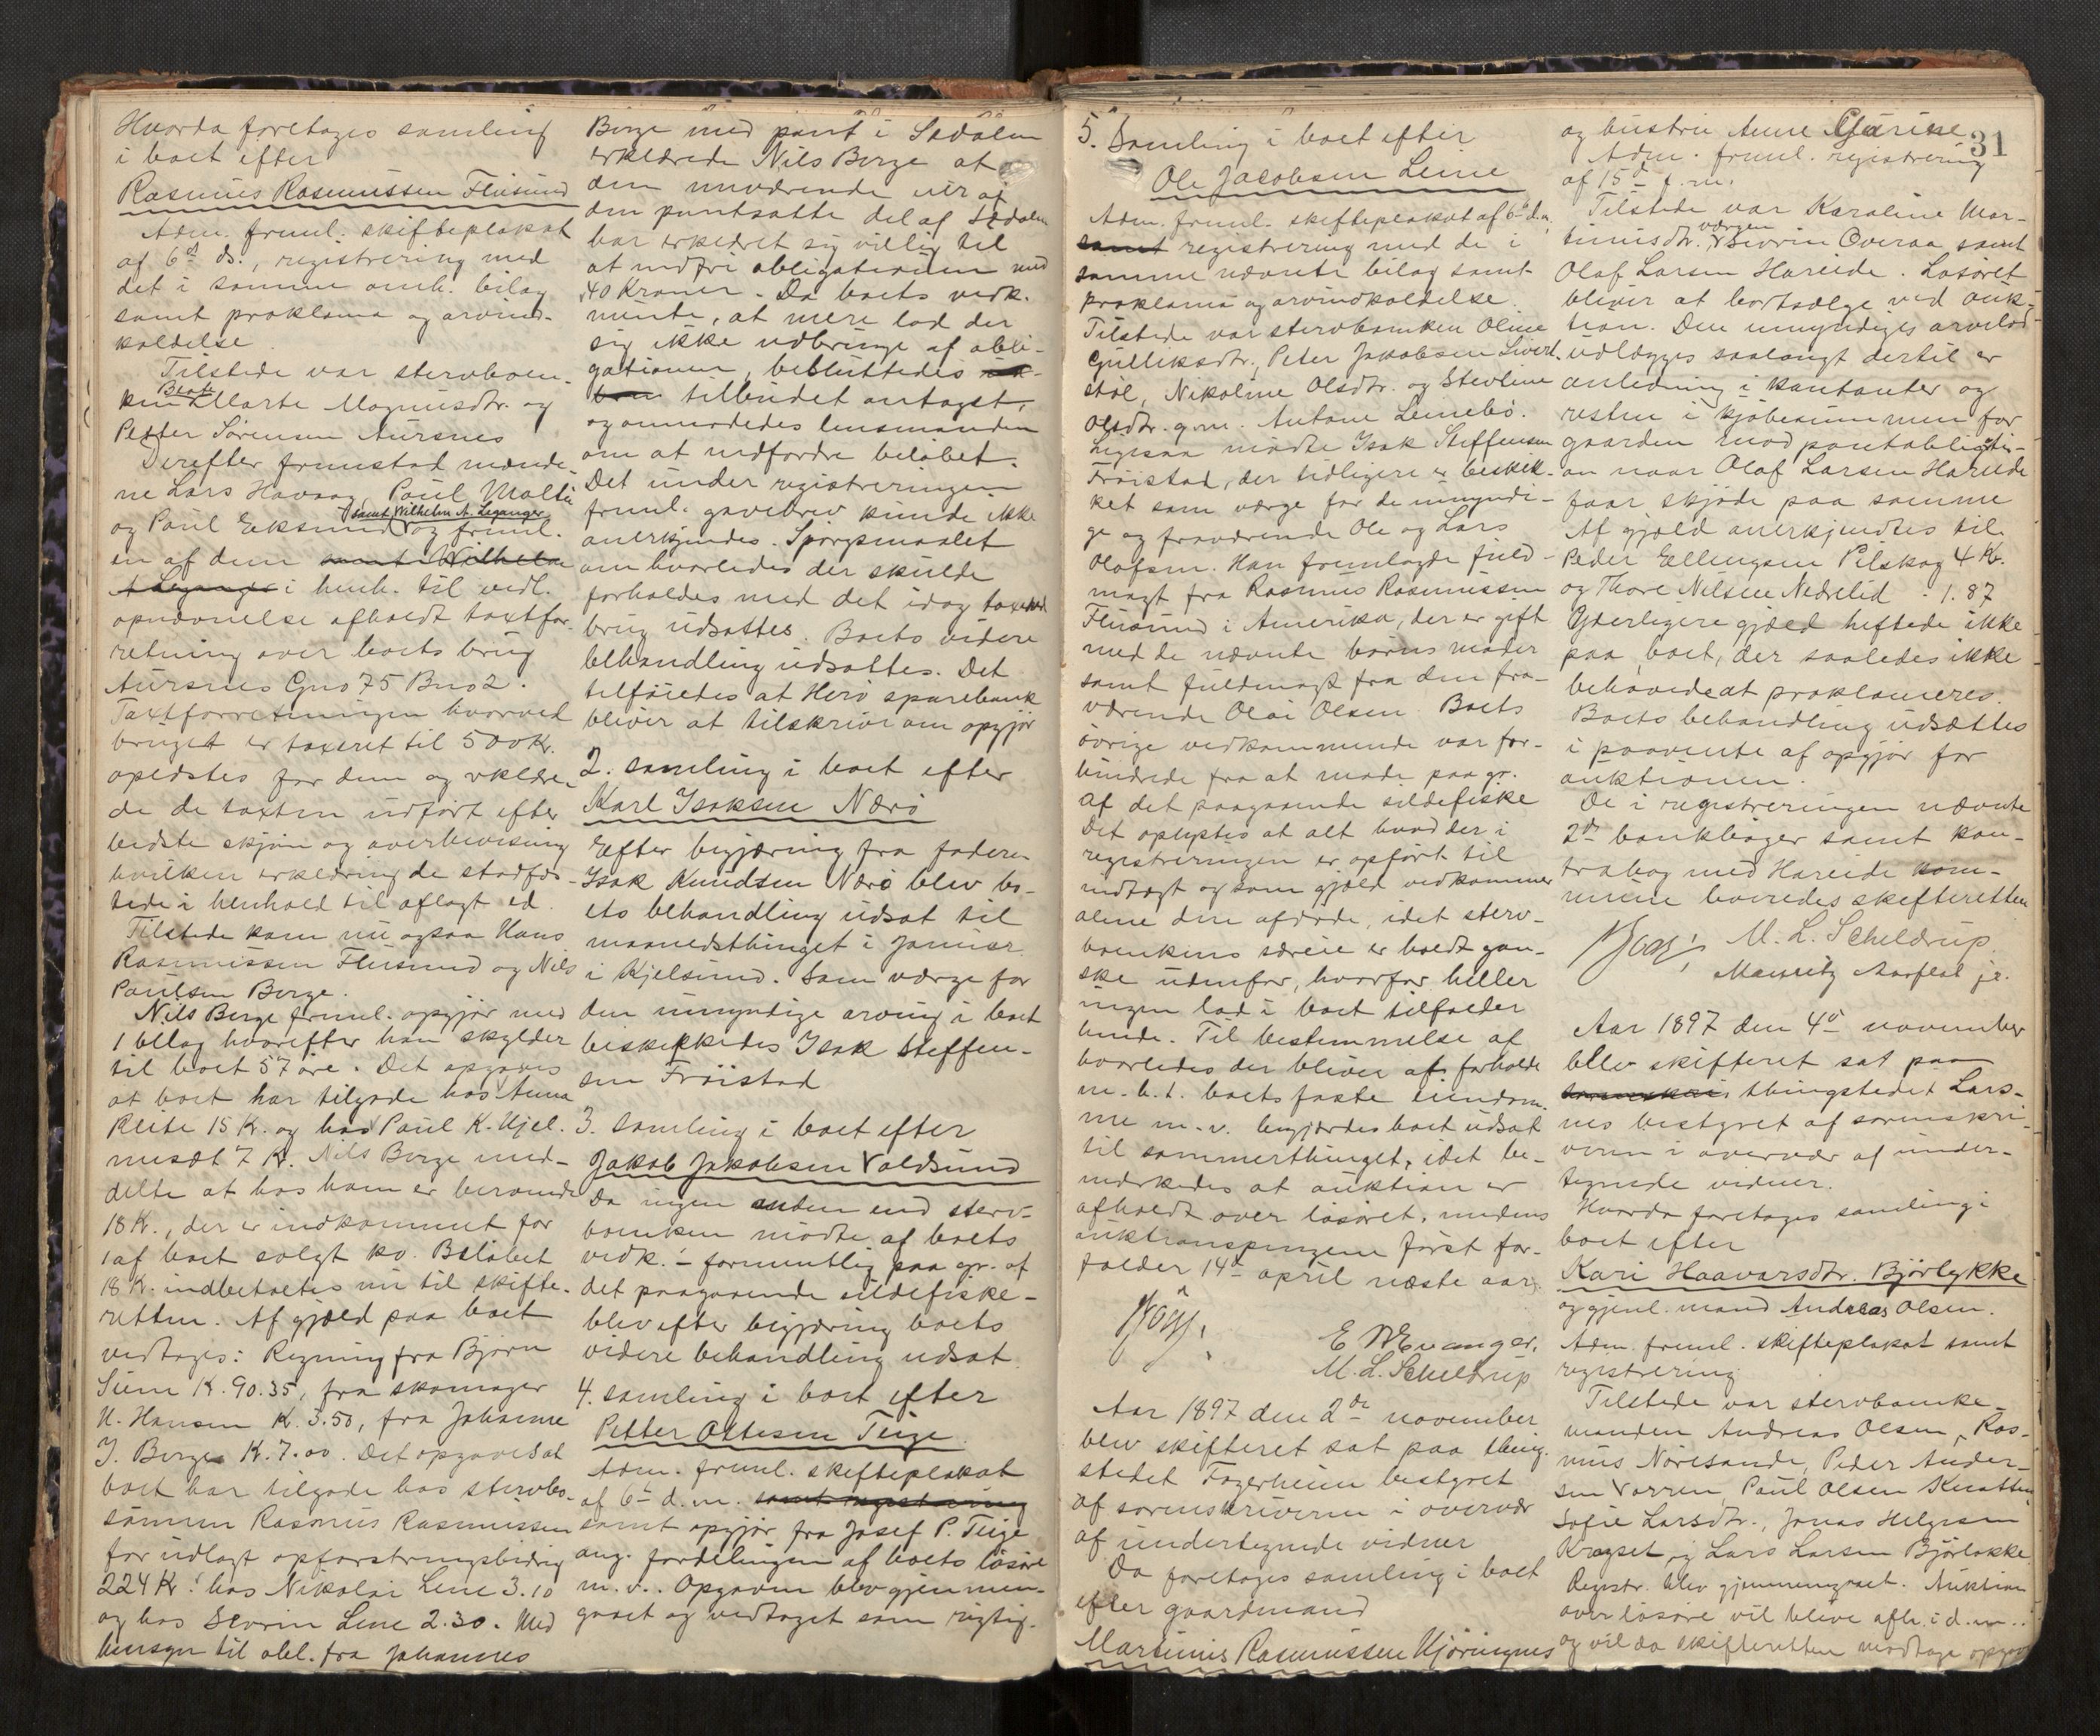 Hvorda foretoges samling
i boet efter
Rasmus Rasmussen Flusund
Adm. freml. skifteplakat
af 6te ds., registrering med
det i samme omh. bilag
samt proklama og arvind-
kaldelse.
Tilstede var stervboen-
ken Berte Marte Magnusdtr. og
Petter Sørensen Aursnes
Derefter fremstod mænde-
ne Lars Havaag, Paul Moltu
og Paul Eksund samt Wilhelm A. Leganger og freml.
en af dem samt Wilhelm
A Leganger i henh. til vedl.
opnævnelse afholdt taxtfor-
retning over boets brug
Aursnes Gno 75 Bno 2.
Taxtforretningen hvorved
bruget er taxeret til 500 Kr.
oplæstes for dem og erklære-
de de taxten udført efter
bedste skjøn og overbevisning
hvilken erklæring de stadfæs-
tede i henhold til aflagt ed.
Tilstede kom nu ogsaa Hans
Rasmussen Flusund og Nils
Paulsen Berge.
Nils Berge freml. opgjør med
1 bilag hvorefter han skylder
til boet 57 øre. Det opgaves
at boet har tilgode hos Anna
Kleite 15 Kr. og hos Paul K. Hjel-
meset 7 Kr. Nils Berge med-
delte at hos ham er beroende
18 Kr., der er indkommet for
1 af boet solgt ko. Beløbet
18 Kr. indbetaltes nu til skifte-
retten. Af gjæld paa boet
vedtoges: Regning fra Bjørn
Sunn K. 90.35, fra skomager
N. Hansen K. 3.50, fra Johanne
J. Berge K. 7.00. Det opgaves at
boet har tilgode hos stervbo-
sønnen Rasmus Rasmussen
for udlagt opfostringsbidrag
224 Kr. hos Nikolai Leine 3.10
og hos Severin Leine 2.30. Med
hensyn til obl. fra Johannes
Berge med pant i Sædalen
erklærede Nils Berge at
den nuværende eier af
den pantsatte del af Sædalen
har erklæret sig villig til
at indfri obligationen med
40 Kroner. Da boets vedk.
mente, at mere lod der
sig ikke udbringe af obli-
gationen, besluttedes
tilbudet antaget,
og anmodedes lensmanden
om at indfordre beløbet.
Det under registreringen
freml. gavebrev kunde ikke
anerkjendes. Spørgsmaalet
om hvorledes der skulde
forholdes med det idag taxerede
brug udsattes. Boets videre
behandling udsattes. Det
tilføiedes at Herø sparebank
bliver at tilskrive om opgjør
2. samling i boet efter
Karl Isaksen Nærø
Efter begjæring fra faderen
Isak Knudsen Nærø blev bo-
ets behandling udsat til
maanedsthinget i januar
i Kjelsund. Som værge for
den umyndige arving i boet
beskikkedes Isak Steffen-
sen Frøistad
3. samling i boet efter
Jakob Jakobsen Voldsund
Da ingen anden end sterv-
boenken mødte af boets
vedk. – formentlig paa gr. af
det paagaaende sildefiske –
blev efter begjæring boets
videre behandling udsat.
4. samling i boet efter
Petter Ottesen Teige.
Adm. freml. skifteplakat
af 6te d.m. samt registrering
samt opgjør fra Josef P. Teige
ang. fordelingen af boets løsøre
m.v.. Opgaven blev gjennem-
gaaet og vedtaget som rigtig.
5. Samling i boet efter
Ole Jacobsen Leine
Adm. freml. skifteplakat af 6te d.m.
samt registrering med de i
samme nævnte bilag samt
proklama og arvindkaldelse.
Tilstede var stervboenken Oline
Gulliksdtr., Peter Jakobsen Sivert-
støl, Nikoline Olsdtr. og Stevline
Olsdtr. g.m. Antone Leinebø.
Ligesaa mødte Isak Steffensen
Frøistad, der tidligere er beskik-
ket som værge for de umyndi-
ge og fraværende Ole og Lars
Olafsen. Han fremlagde fuld-
magt fra Rasmus Rasmussen
Flusund i Amerika, der er gift
med de nævnte børns moder
samt fuldmagt fra den fra-
værende Olai Olsen. Boets
øvrige vedkommende var for-
hindrede fra at møde paa gr.
af det paagaaende sildefiske
Det oplystes at alt hvad der i
registreringen er opført til
indtægt og som gjæld vedkommer
alene den afdøde, idet sterv-
boenkens særeie er holdt gan-
ske udenfor, hvorfor heller
ingen lod i boet tilfalder
hende. Til bestemmelse af
hvorledes der bliver at forholde
m.h.t. boets faste eiendom-
me m.v. begjærdes boet udsat
til sommerthinget, idet be-
mærkedes at auktion er
afholdt over løsøret, medens
auktionspengene først for-
falder 14de april næste aar.
E M Evanger.
M. L. Scheldrup
Aar 1897 den 2den november
blev skifteret sat paa thing-
stedet Fagerheim bestyret
af sorenskriveren i overvær
af undertegnede vidner
Da foretoges samling i boet
efter gaardmand
Martinus Rasmussen Hjørungnes
31
og hustru Anne Gurine
Adm. freml. registrering
af 15de f.m.
Tilstede var Karoline Mar-
tinusdtr. værgen Sivrin Overaa samt
Olaf Larsen Hareide. Løsøret
bliver at bortsælge ved auk-
tion. Den umyndiges arvelod
udlægges saalangt dertil er
anledning i kontanter og
resten i kjøbesummen for
gaarden mod pantobligati-
on naar Olaf Larsen Hareide
faar skjøde paa samme
Af gjæld anerkjendtes til
Peder Ellingsen Pilskog 4 Kr.
og Thore Nilsen Nedrelid - 1.87
Yderligere gjæld heftede ikke
paa boet, der saaledes ikke
behøvede at proklameres.
Boets behandling udsættes
i paavente af opgjør for
auktionen.
De i registreringen nævnte
2de bankbøger samt kon-
trabog med Hareide kom-
mune beroedes skifteretten
M. L. Scheldrup.
Mauritz Aarflot jr.
Aar 1897 den 4de november
blev skifteret sat paa
thingstedet Lars-
nes bestyret af sorenskri-
veren i overvær af under-
tegnede vidner.
Hvorda foretoges samling i
boet efter
Kari Haavarsdtr. Bjørlykke
og gjenl. mand Andreas Olsen.
Adm. freml. skifteplakat samt
registrering
Tilstede var stervboenke-
manden Andreas Olsen, Ras-
mus Nøresande, Peder Ander-
sen Vorren, Paul Olsen Knotten
Sofie Larsdtr., Jonas Helgesen
Kragset og Lars Larsen Bjørlokke.
Registr. blev gjennemgaaet. Auktion
over løsøre vil blive afh. i d.m..
og vil da skifteretten modtage opgave